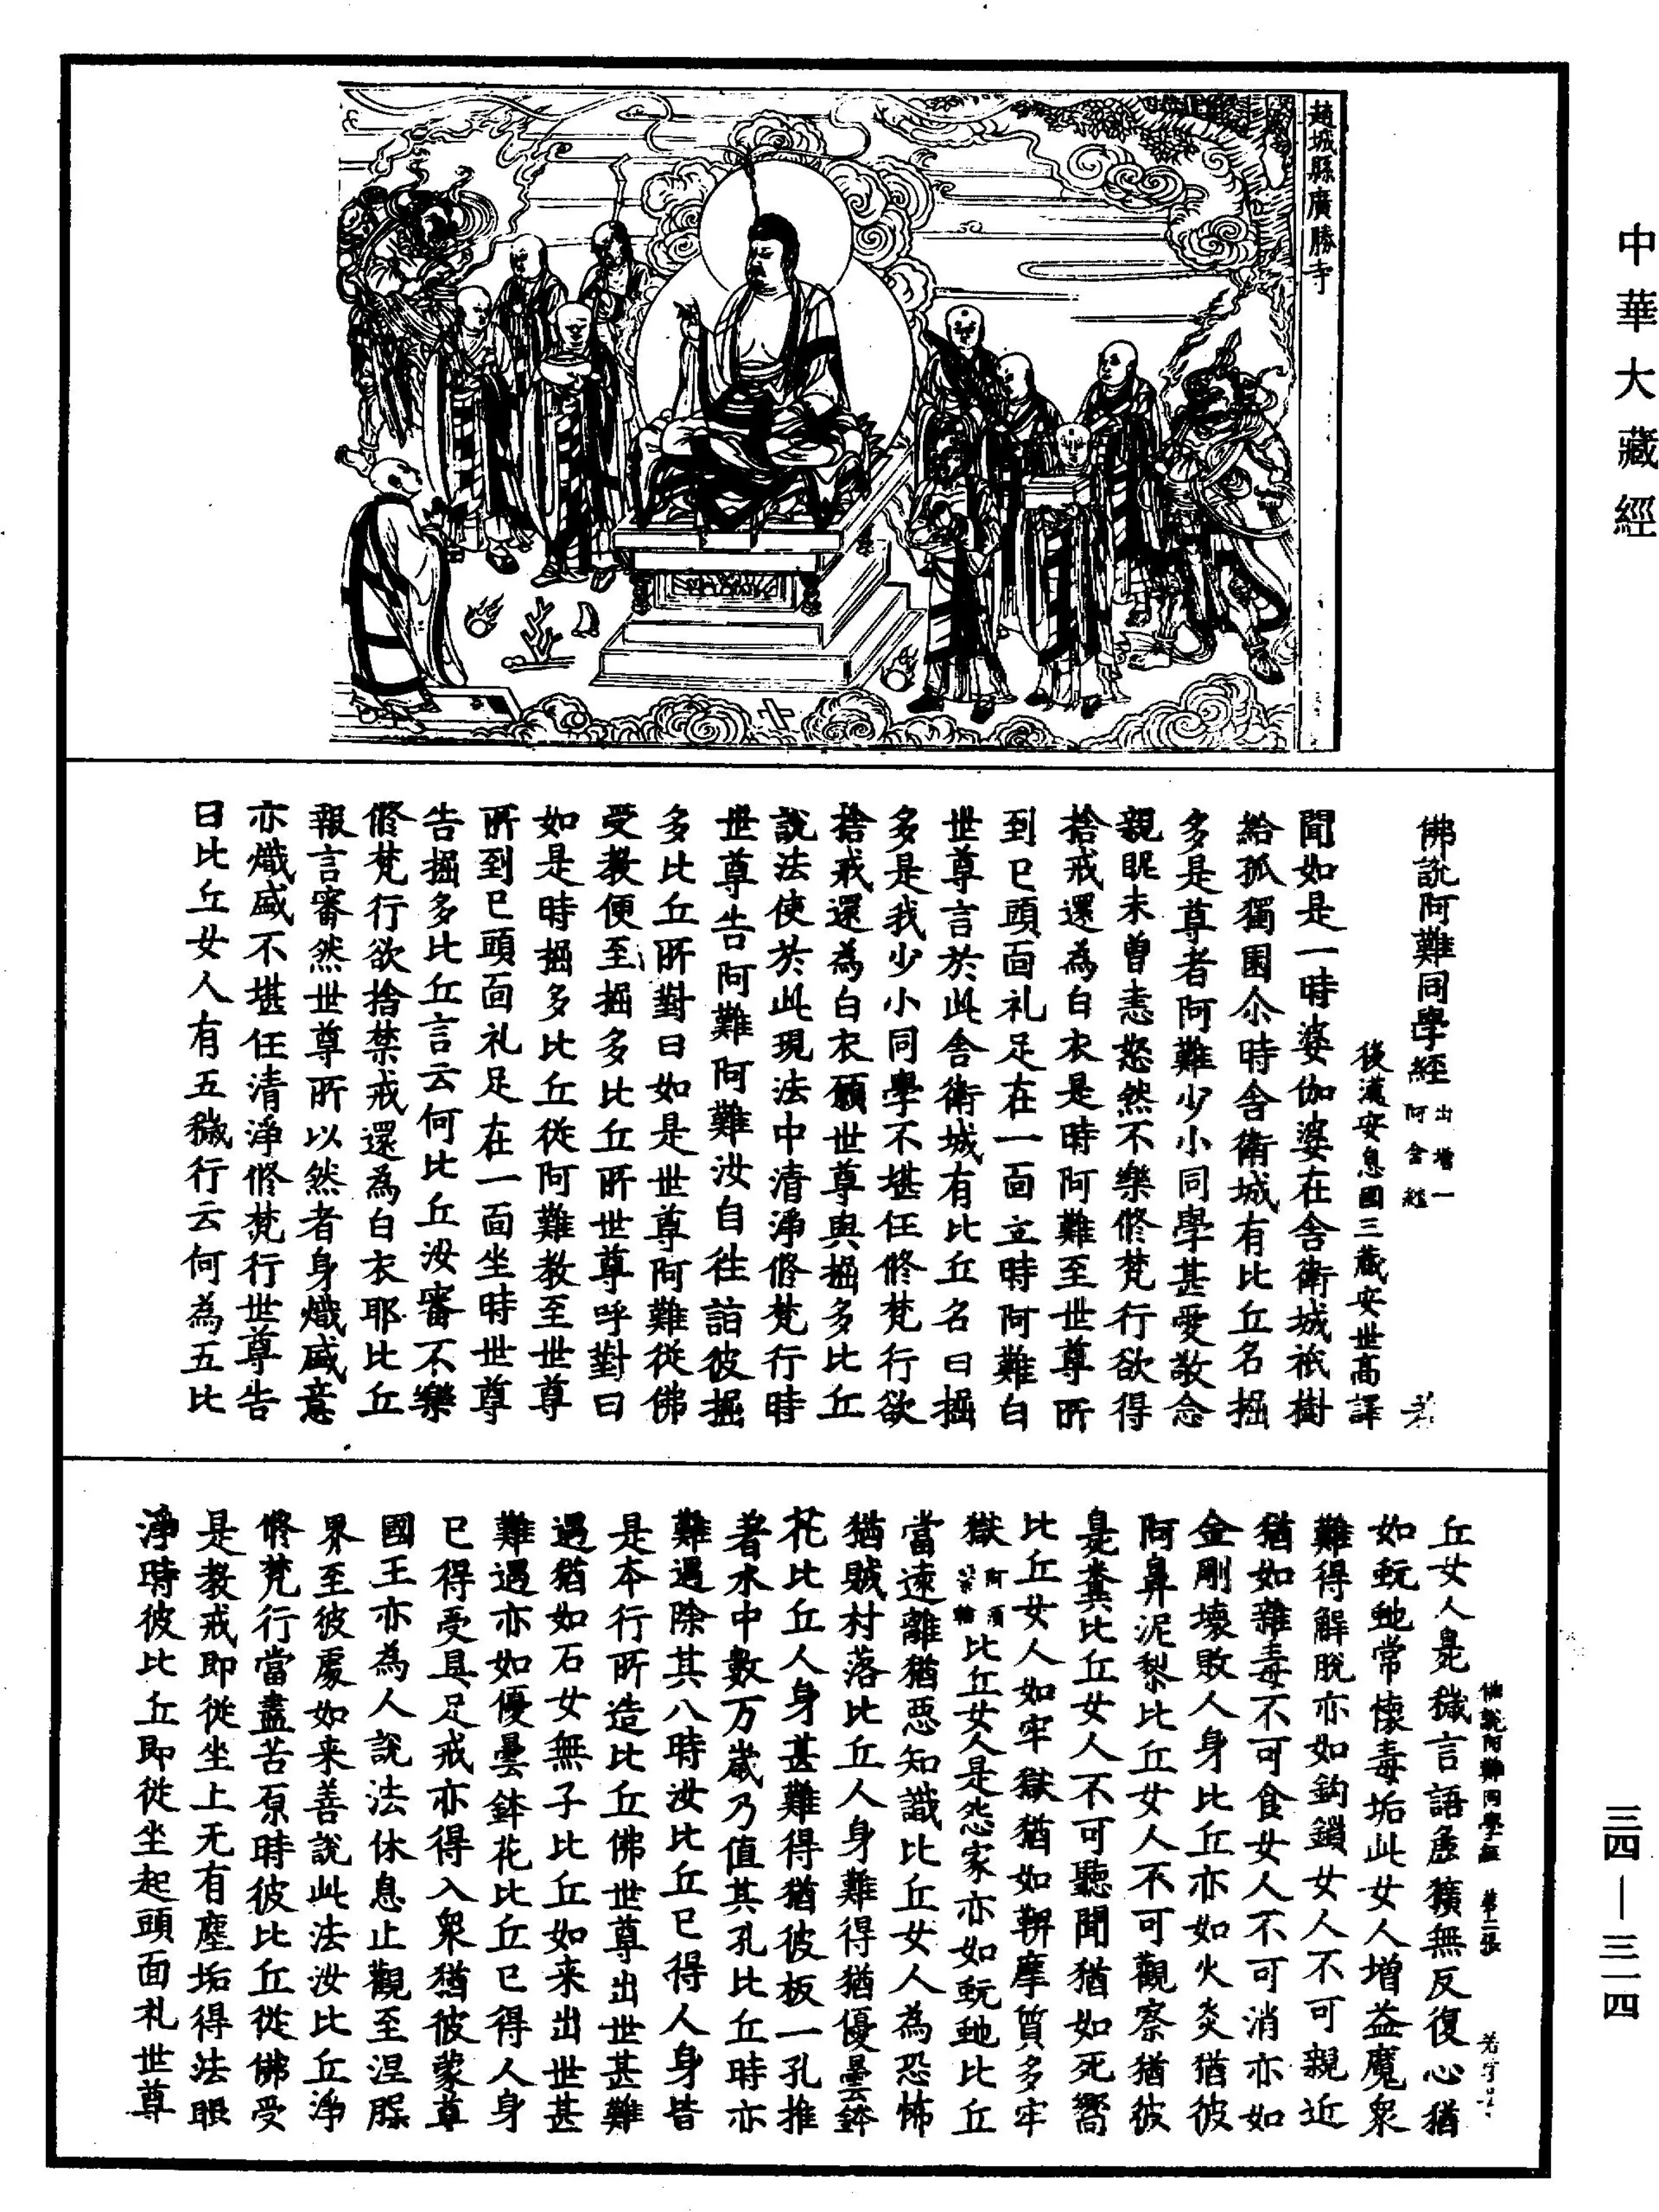 中華大藏經
趙城縣廣勝寺
佛說阿難同學經 出增一阿含經 若
後漢安息國三藏安世高譯
聞如是一時婆伽婆在舍衛城祇樹
給孤獨園尒時舍衛城有比丘名掘
多是尊者阿難少小同學甚愛敬念
親昵未曾恚怒然不樂脩梵行欲得
捨戒還為白衣是時阿難至世尊所
到已頭面礼足在一面立時阿難白
世尊言於此舍衛城有比丘名曰掘
多是我少小同學不堪任脩梵行欲
捨戒還為白衣願世尊與掘多比丘
說法使於此現法中清淨脩梵行時
世尊告阿難阿難汝自往詣彼掘
多比丘所對曰如是世尊阿難從佛
受教便至掘多比丘所世尊呼對曰
如是時掘多比丘從阿難教至世尊
所到已頭面礼足在一面坐時世尊
告掘多比丘言云何比丘汝審不樂
脩梵行欲捨禁戒還為白衣耶比丘
報言審然世尊所以然者身熾盛意
亦熾盛不堪任清淨脩梵行世尊告
曰比丘女人有五穢行云何為五比
佛說阿難同學經 第二張 若字号
丘女人臭穢言語麁獷無反復心猶
如蚖虵常懷毒垢此女人增益魔衆
難得解脫亦如鈎鎖女人不可親近
猶如雜毒不可食女人不可消亦如
金剛壞敗人身比丘亦如火炎猶彼
阿鼻泥犁比丘女人不可觀察猶彼
臭糞比丘女人不可聽聞猶如死嚮
比丘女人如牢獄猶如鞞摩質多牢
獄 阿須輪 比丘女人是怨家亦如蚖虵比丘
當遠離猶惡知識比丘女人為恐怖
猶賊村落比丘人身難得猶優曇鉢
花比丘人身甚難得猶彼板一孔推
著水中數万歲乃值其孔比丘時亦
難遇除其八時汝比丘已得人身皆
是本行所造比丘佛世尊出世甚難
遇猶如石女無子比丘如来出世甚
難遇亦如優曇鉢花比丘已得人身
已得受具足戒亦得入衆猶彼蒙尊
國王亦為人說法休息止觀至涅槃
界至彼處如来善說此法汝比丘淨
脩梵行當盡苦原時彼比丘從佛受
是教戒即從坐上无有塵垢得法眼
淨時彼比丘即從坐起頭面礼世尊
三四—三一四